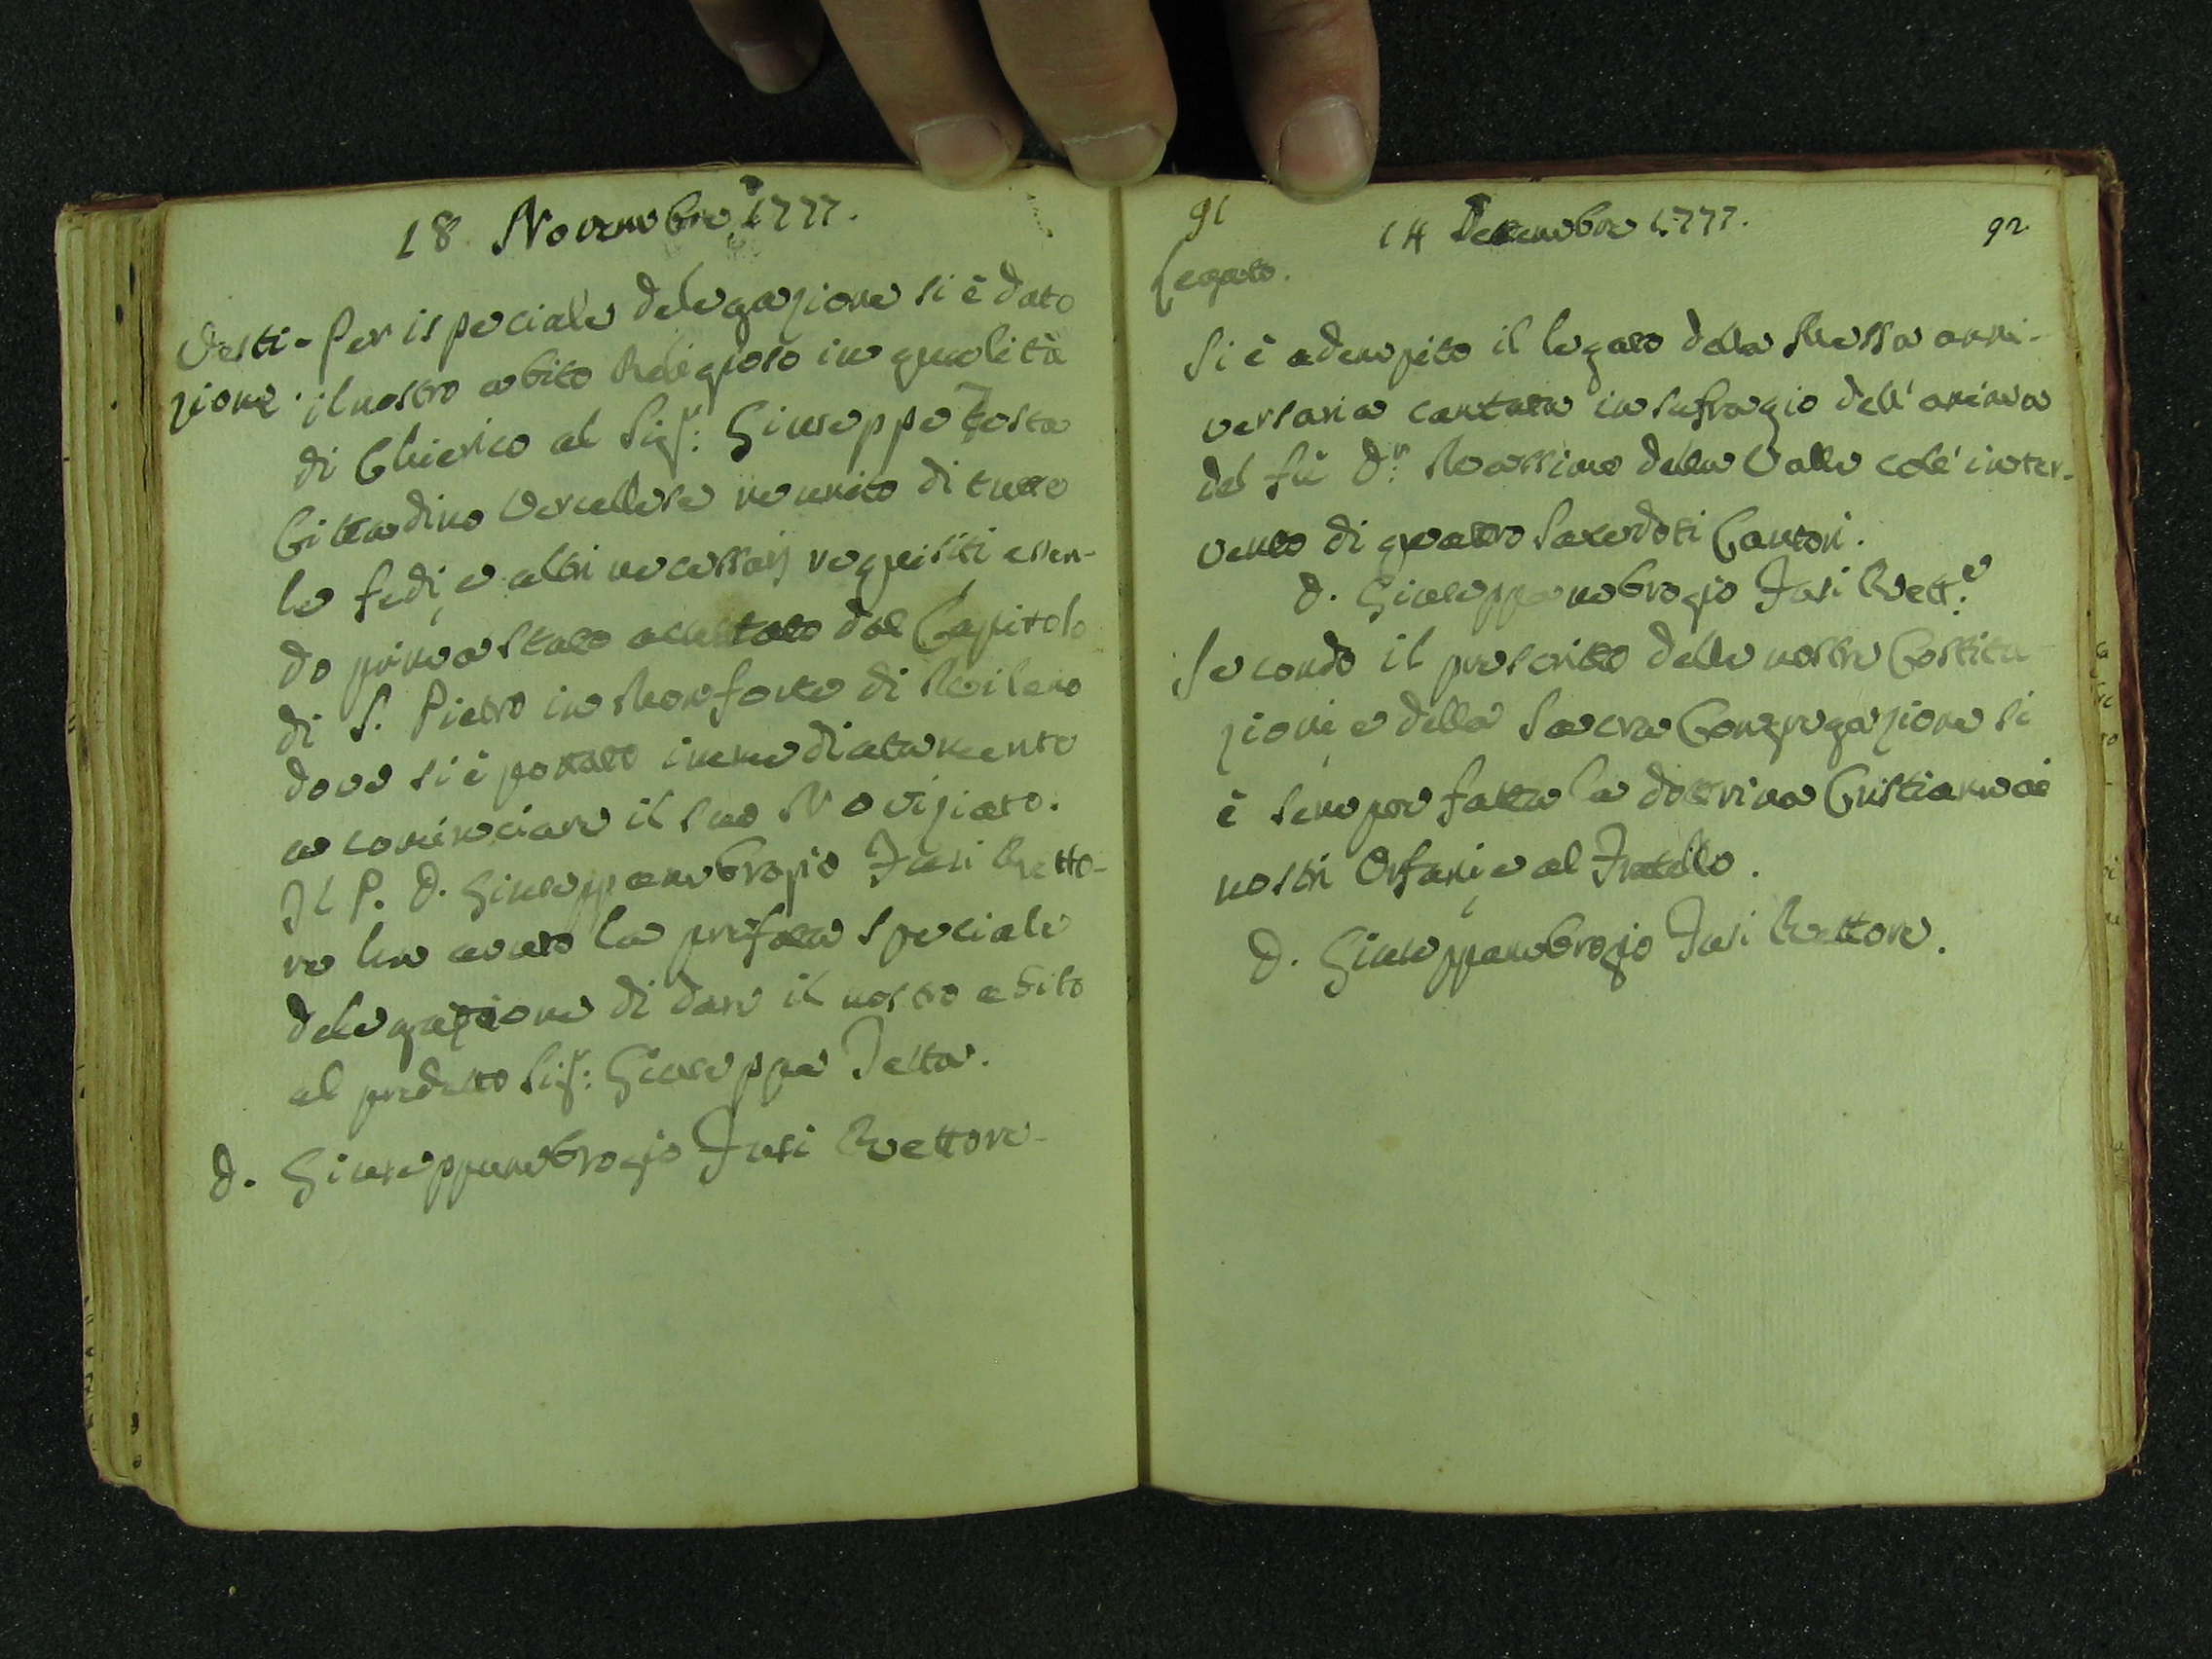 18 Novembre 1777.
Vesti- Per ispeciale delegazione si è dato
zione. il nostro abito Religioso in qualità
di Chierico al Sigr: Giuseppe Testa
Cittadino Vercellese munito di tutte
le fedi, e altri necessarj requisiti essen-
do prima stato accettato dal Capitolo
di S. Pietro in Monforte di Milano
dove si è portato immediatamente
a cominciare il suo Noviziato.
Il P. D. Giuseppambrogio Fusi Retto-
re ha avuto la prefata speciale
delegazione di dare il nostro abito
al predetto Sigr: Giuseppe Testa.
D. Giuseppambrogio Fusi Rettore
91
14 Decembre 1777.
92
Legato.
Si è adempito il legato della Messa anni-
versaria cantata in sufragio dell' anima
del fù Dr: Massimo della Valle col' inter-
vento di quattro Sacerdoti Cantori.
D. Giuseppambrogio Fusi Rett:e
Secondo il prescritto delle nostre Costitu-
zioni, e della Sacra Congregazione si
è sempre fatta la dottrina Cristiana ai
nostri Orfani, e al Fratello.
D. Giuseppambrogio Fusi Rettore.